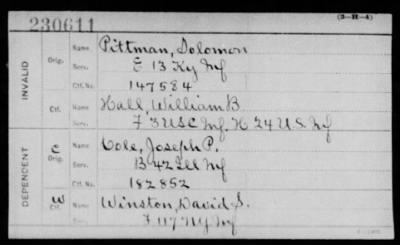 230611
(3-H-4)
INVALID
Orig. Name Pittman, Solomon
Serv. E 13 Ky Inf
Ctf. No. 147584
Ctf. Name Hall, William B.
F 3 U S C Inf. H 24 U.S. Inf
DEPENDENT
C Orig. Name Cole, Joseph P.
Serv. B 42 Ill Inf
Ctf. No. 182852
W Ctf. Name Winston, David S.
F 117 N.Y. Inf